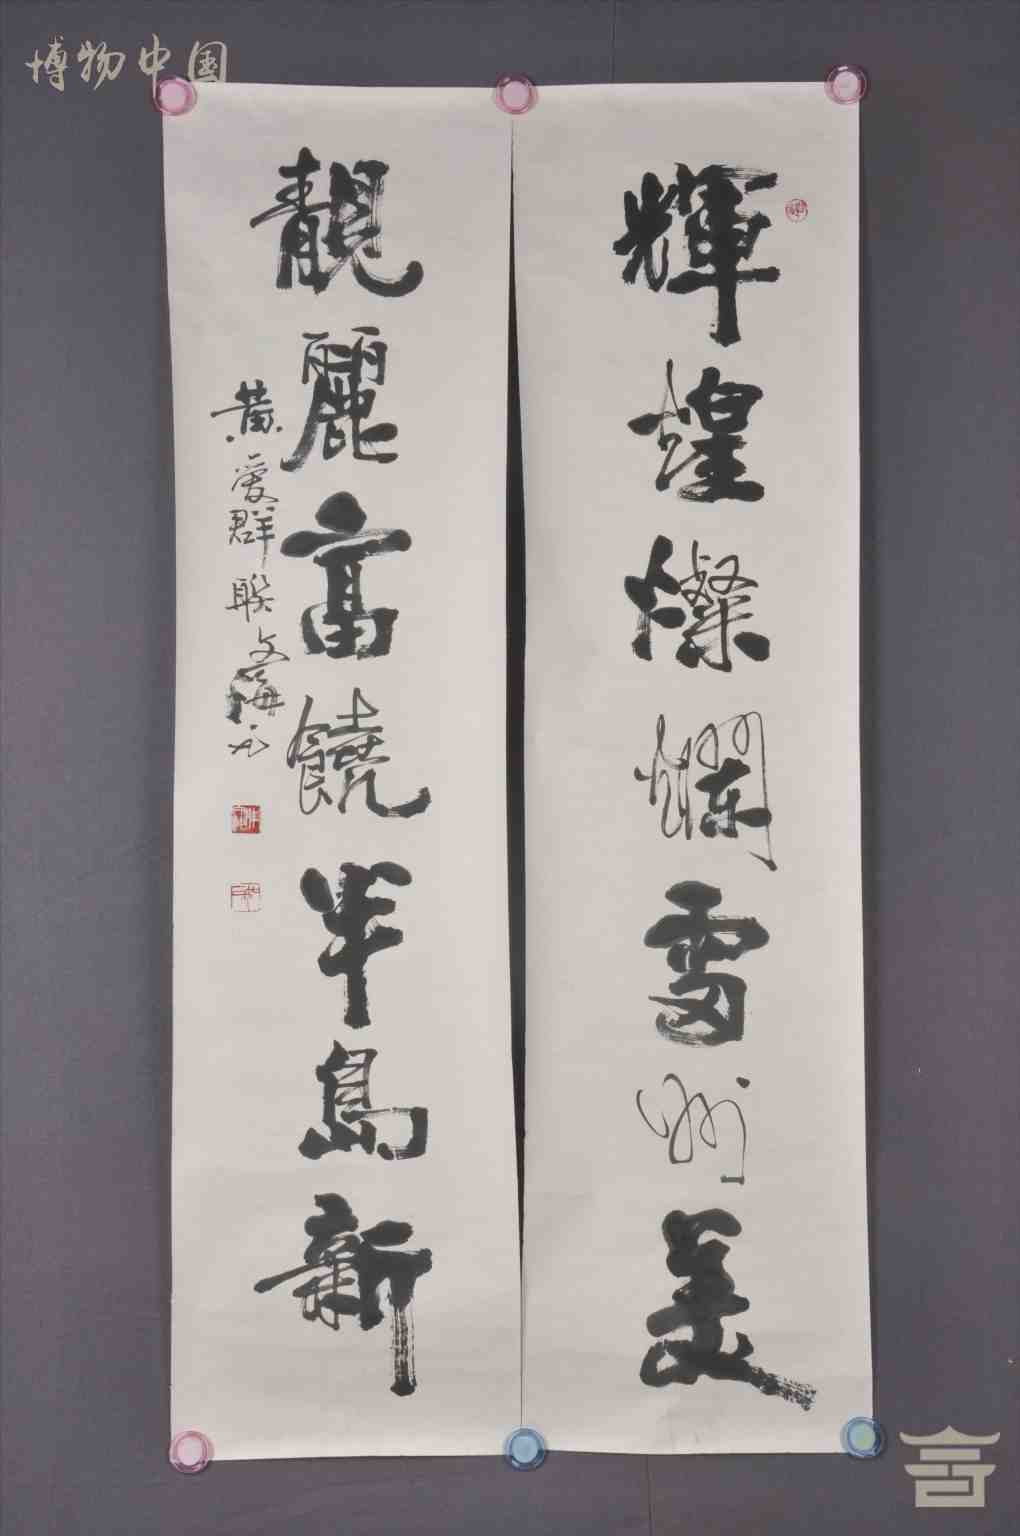 博物中国
輝煌燦爛雷州美
靚麗富饒半島新
黄愛群联文海书